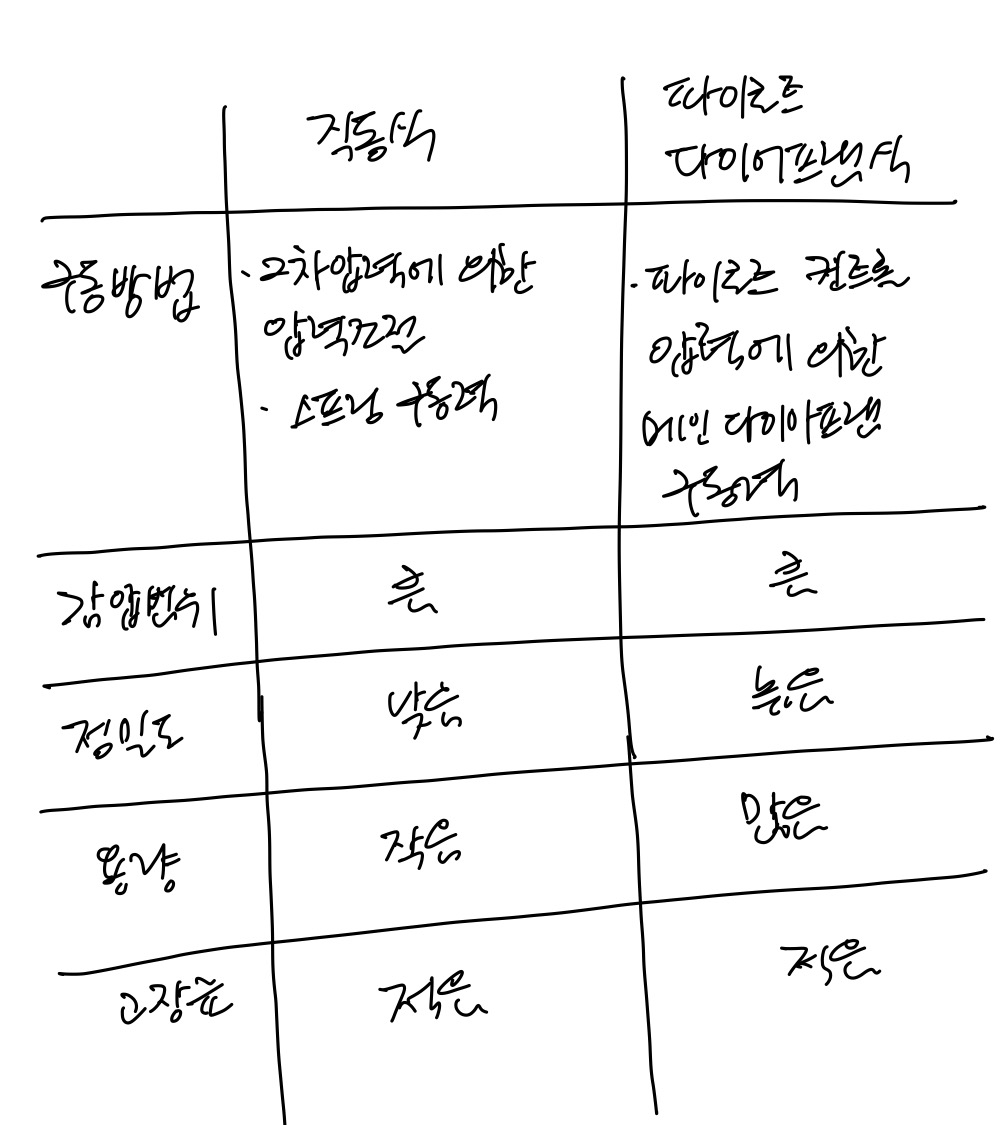 직동식
파이로트
다이어프램식
구동방법
· 2차압력에 의한
압력조절
· 스프링 구동력
· 파이로트 컨트롤
압력에 의한
메인 다이아프램
구동력
감압범위
큼
큼
정밀도
낮음
높은
용량
작음
많은
고장율
적은
적은